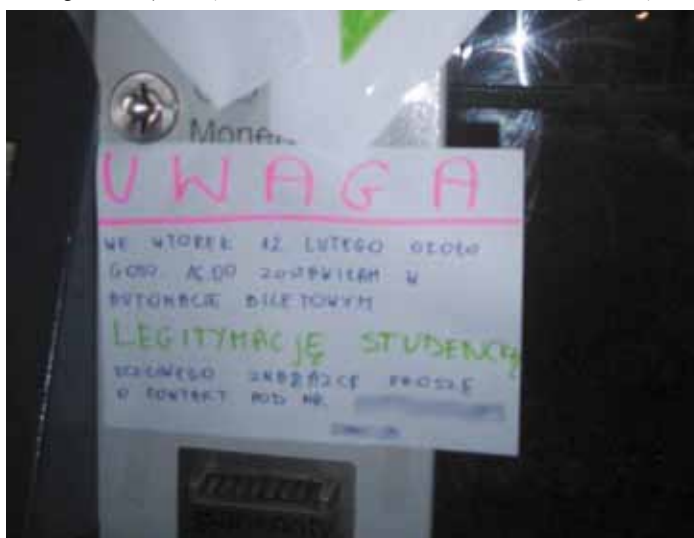 Monety
UWAGA
WE WTOREK 12 LUTEGO OKOŁO
GODZ 16.00 ZOSTAWIŁAM W
AUTOMACIE BILETOWYM
LEGITYMACJĘ STUDENCKĄ
UCZCIWEGO ZNALAZCĘ PROSZĘ
O KONTAKT POD NR.